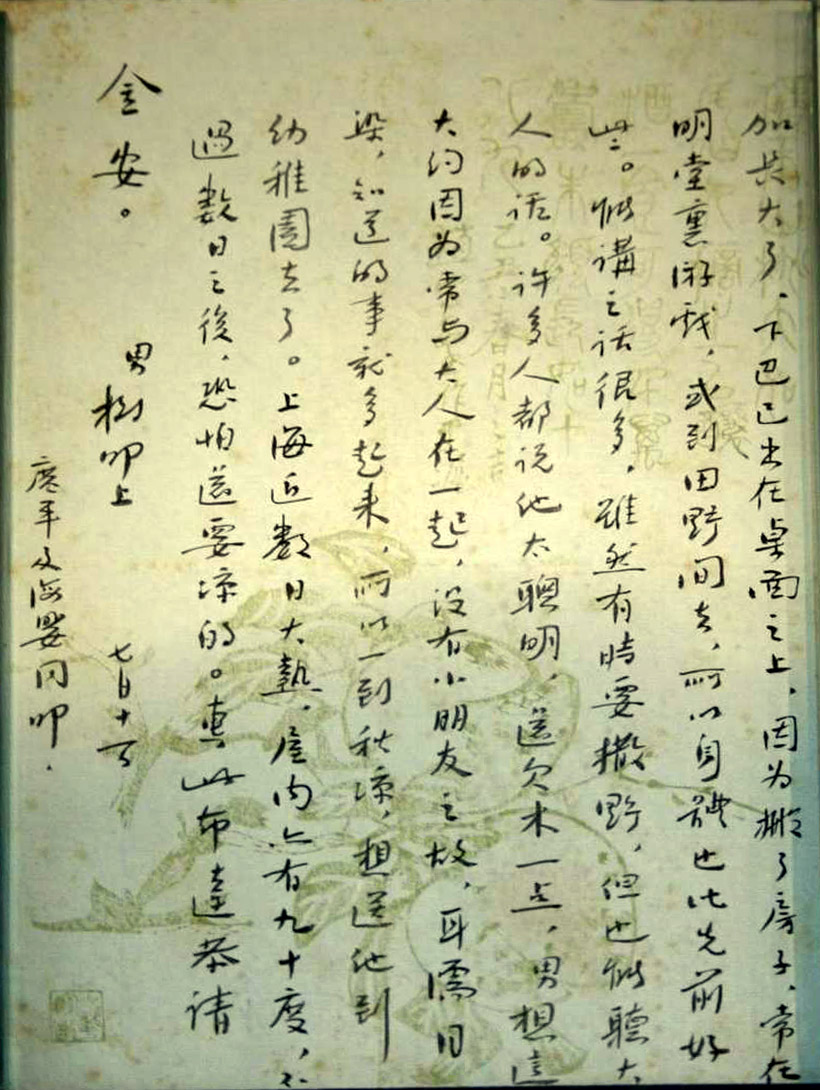 加長大了、下巴已出在桌面之上，因為搬了房子，常在
明堂裏游戲，或到田野間去，所以身體也比先前好
些。能講之話很多，雖然有時要撒野，但也能聽大
人的話。許多人都說他太聰明，還欠木一點，男想這
大約因為常與大人在一起，沒有小朋友之故，耳濡目
染，知道的事就多起來，所以一到秋涼，想送他到
幼稚園去了。上海近數日大熱，屋內亦有九十度，不
過數日之後，恐怕還要涼的。專此布達恭請
金安。
男樹叩上 七月十二
廣平及海嬰同叩．